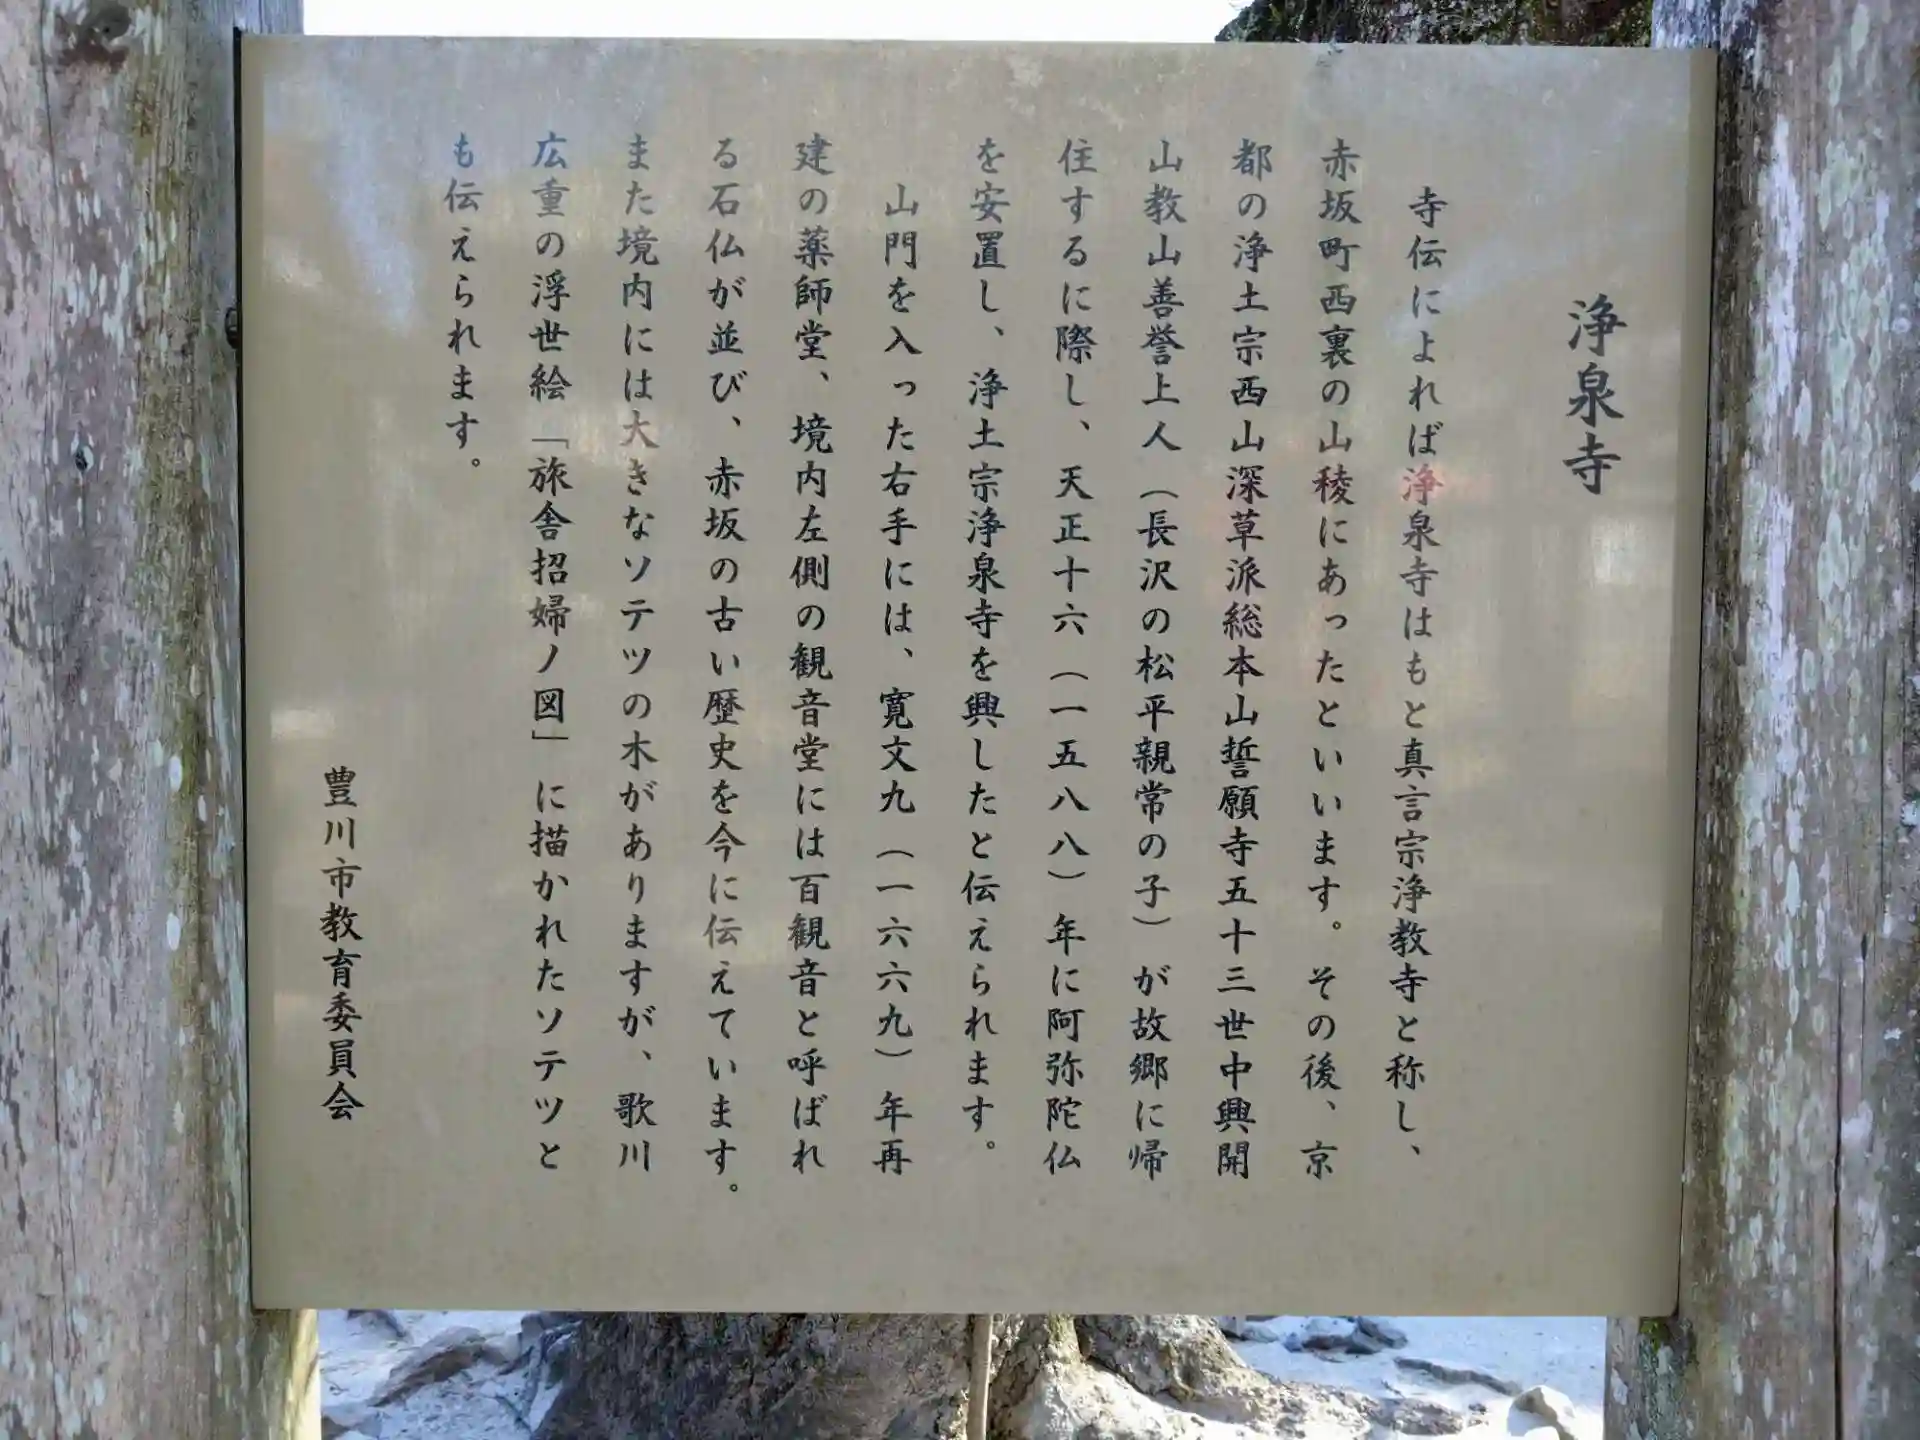 浄泉寺
寺伝によれば浄泉寺はもと真言宗浄教寺と称し、
赤坂町西裏の山稜にあったといいます。その後、京
都の浄土宗西山深草派総本山誓願寺五十三世中興開
山教山善誉上人（長沢の松平親常の子）が故郷に帰
住するに際し、天正十六（一五八八）年に阿弥陀仏
を安置し、浄土宗浄泉寺を興したと伝えられます。
山門を入った右手には、寛文九（一六六九）年再
建の薬師堂、境内左側の観音堂には百観音と呼ばれ
る石仏が並び、赤坂の古い歴史を今に伝えています。
また境内には大きなソテツの木がありますが、歌川
広重の浮世絵「旅舎招婦ノ図」に描かれたソテツと
も伝えられます。
豊川市教育委員会